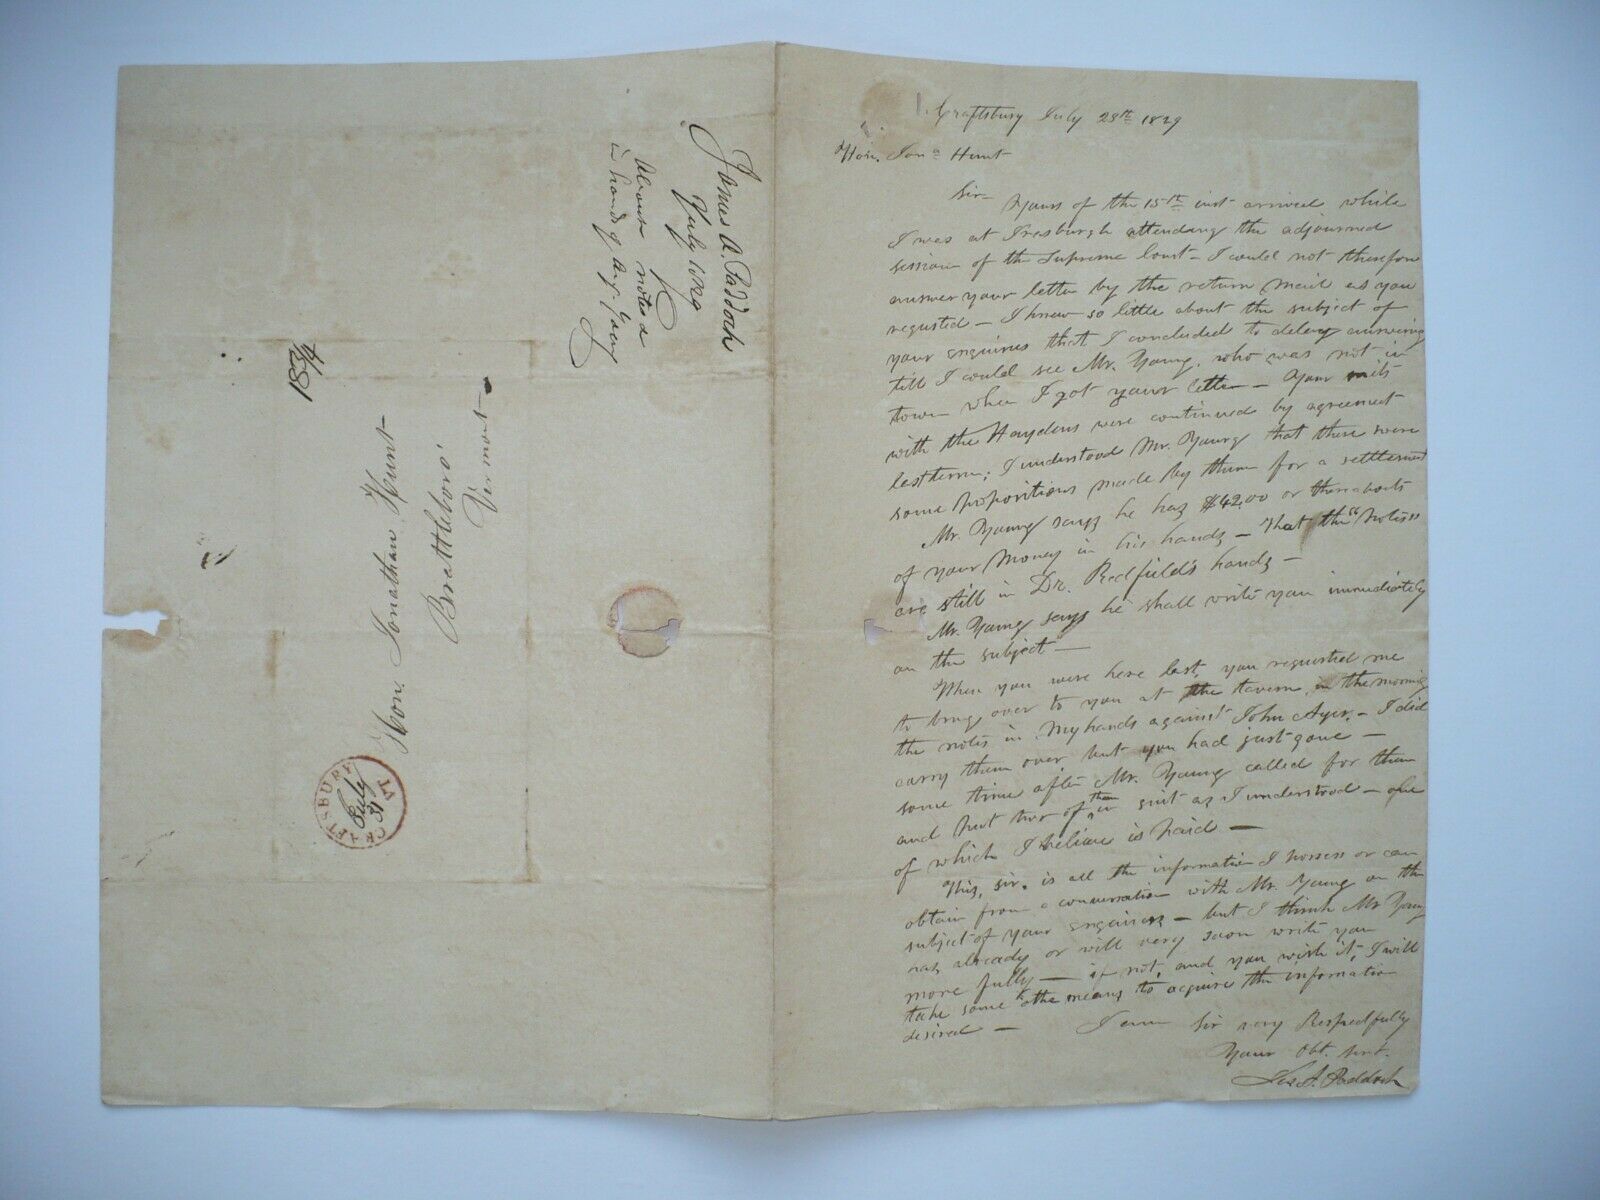 Craftsbury July 28th 1829
Hon. Jona Hunt
Sir- Yours of the 15th inst arrived while
I was at Irasburgh attending the adjourned
session of the Supreme Court - I could not therefore
answer your letter by the return mail as you
requsted - I knew so little about the subject of
your enquiries that I concluded to delay answering
till I could see Mr. Young, who was not in
town when I got your letter - Your suits
with the Haydens were continued by agreement
last term; I understood Mr. Young that there were
some propositions made by them for a settlement
Mr. Young says he has $42.00 or thereabouts
of your money in his hands - That the "notes"
are still in Dr. Redfield's hands -
Mr. Young says he shall write you immediately
on the subject -
When you were here last, you requested me
to bring over to you at the tavern, in the morning
the notes in my hands against John Ayer. - I did
carry them over but you had just gone -
some time after Mr. Young called for them
and put two of them in suit as I understood - one
of which I believe is paid -
This, sir, is all the information I possess or can
obtain from a conversation with Mr. Young on the
subject of your enquiries - but I think Mr Young
has already or will very soon write you
more fully - if not, and you wish it, I will
take some other means to acquire the information
desired - I am Sir very Respectfully
Your Obt. Servt.
Jas A. Paddock
James A. Paddock
July 1829
About notes
in hands of Aug. Young
Hon. Jonathan Hunt
Brattleboro'
Vermont
CRAFTSBURY VT
July
31